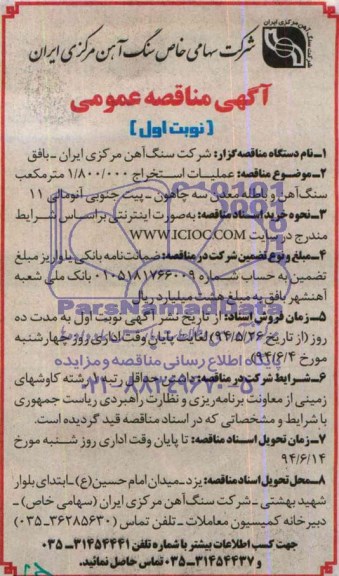 شرکت سنگ آهن مرکزی ایران
شرکت سهامی خاص سنگ آهن مرکزی ایران
آگهی مناقصه عمومی
(نوبت اول)
۱ـ نام دستگاه مناقصه گزار: شرکت سنگ آهن مرکزی ایران ـ بافق
۲ـ موضوع مناقصه: عملیات استخراج ۱/۸۰۰/۰۰۰ مترمکعب
سنگ آهن و باطله معدن سه چاهون ـ پیت جنوبی آنومالی ۱۱
۳ـ نحوه خرید اسناد مناقصه: به صورت اینترنتی براساس شرایط
مندرج در سایت WWW.ICIOC.COM
۴ـ مبلغ و نوع تضمین شرکت در مناقصه: ضمانت نامه بانکی یا واریز مبلغ
تضمین به حساب شماره ۰۱۰۵۱۸۱۷۶۶۰۰۹ بانک ملی شعبه
آهنشهر بافق به مبلغ هشت میلیارد ریال
۵ـ زمان فروش اسناد: از تاریخ نشر آگهی نوبت اول به مدت ده
روز (از تاریخ ۹۴/۵/۲۶) لغایت پایان وقت اداری روز چهارشنبه
مورخ ۹۴/۶/۴
۶ـ شرایط شرکت در مناقصه: داشتن حداقل رتبه رشته کاوشهای
زمینی از معاونت برنامه ریزی و نظارت راهبردی ریاست جمهوری
با شرایط و مشخصاتی که در اسناد مناقصه قید گردیده است.
۷ـ زمان تحویل اسناد مناقصه: تا پایان وقت اداری روز شنبه مورخ
۹۴/۶/۱۴
۸ـ محل تحویل اسناد مناقصه: یزد ـ میدان امام حسین(ع) ـ ابتدای بلوار
شهید بهشتی ـ شرکت سنگ آهن مرکزی ایران (سهامی خاص) ـ
دبیرخانه کمیسیون معاملات ـ تلفن تماس (۳۶۲۸۵۶۳۰ـ۰۳۵)
جهت کسب اطلاعات بیشتر با شماره تلفن ۳۱۴۵۴۴۴۱ـ۰۳۵
و ۳۱۴۵۴۴۳۷ـ۰۳۵ تماس حاصل نمائید.
ParsNamadData
پایگاه اطلاع رسانی مناقصه و مزایده